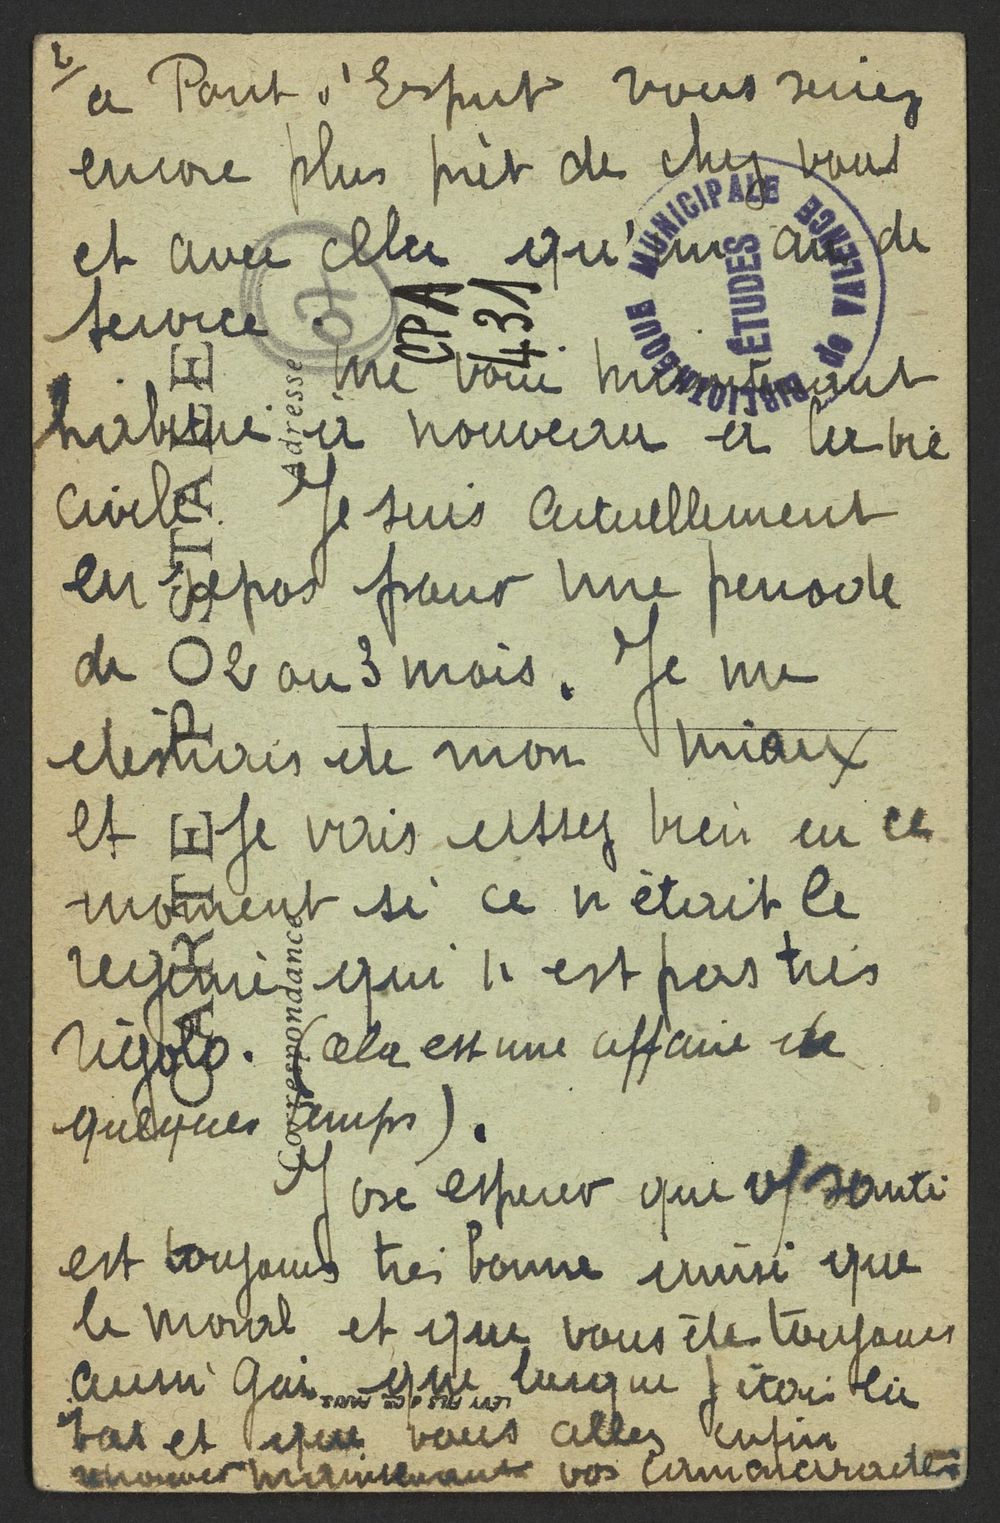 2/
a Pont d'Esprit vous seriez
encore plus prèt de chez vous
et avec cela qu'un an de
service.
Me voici maintenant
habitué à nouveau a la vie
civile. Je suis actuellement
en repos pour une periode
de 2 ou 3 mois. Je me
distrais de mon mieux
et Je vais assez bien en ce
moment si ce n'était le
regime qui n'est pas très
rigolo. (Cela est une affaire de
quelques temps).
J'ose esperer que v/ santé
est toujours très bonne ainsi que
le moral et que vous êtes toujours
aussi gai que lorsque j'étais là
bas et que vous allez enfin
maintenant vos camararades
CARTE POSTALE
Correspondance
Adresse
CPA
431
BIBLIOTHÈQUE MUNICIPALE de VALENCE
ÉTUDES